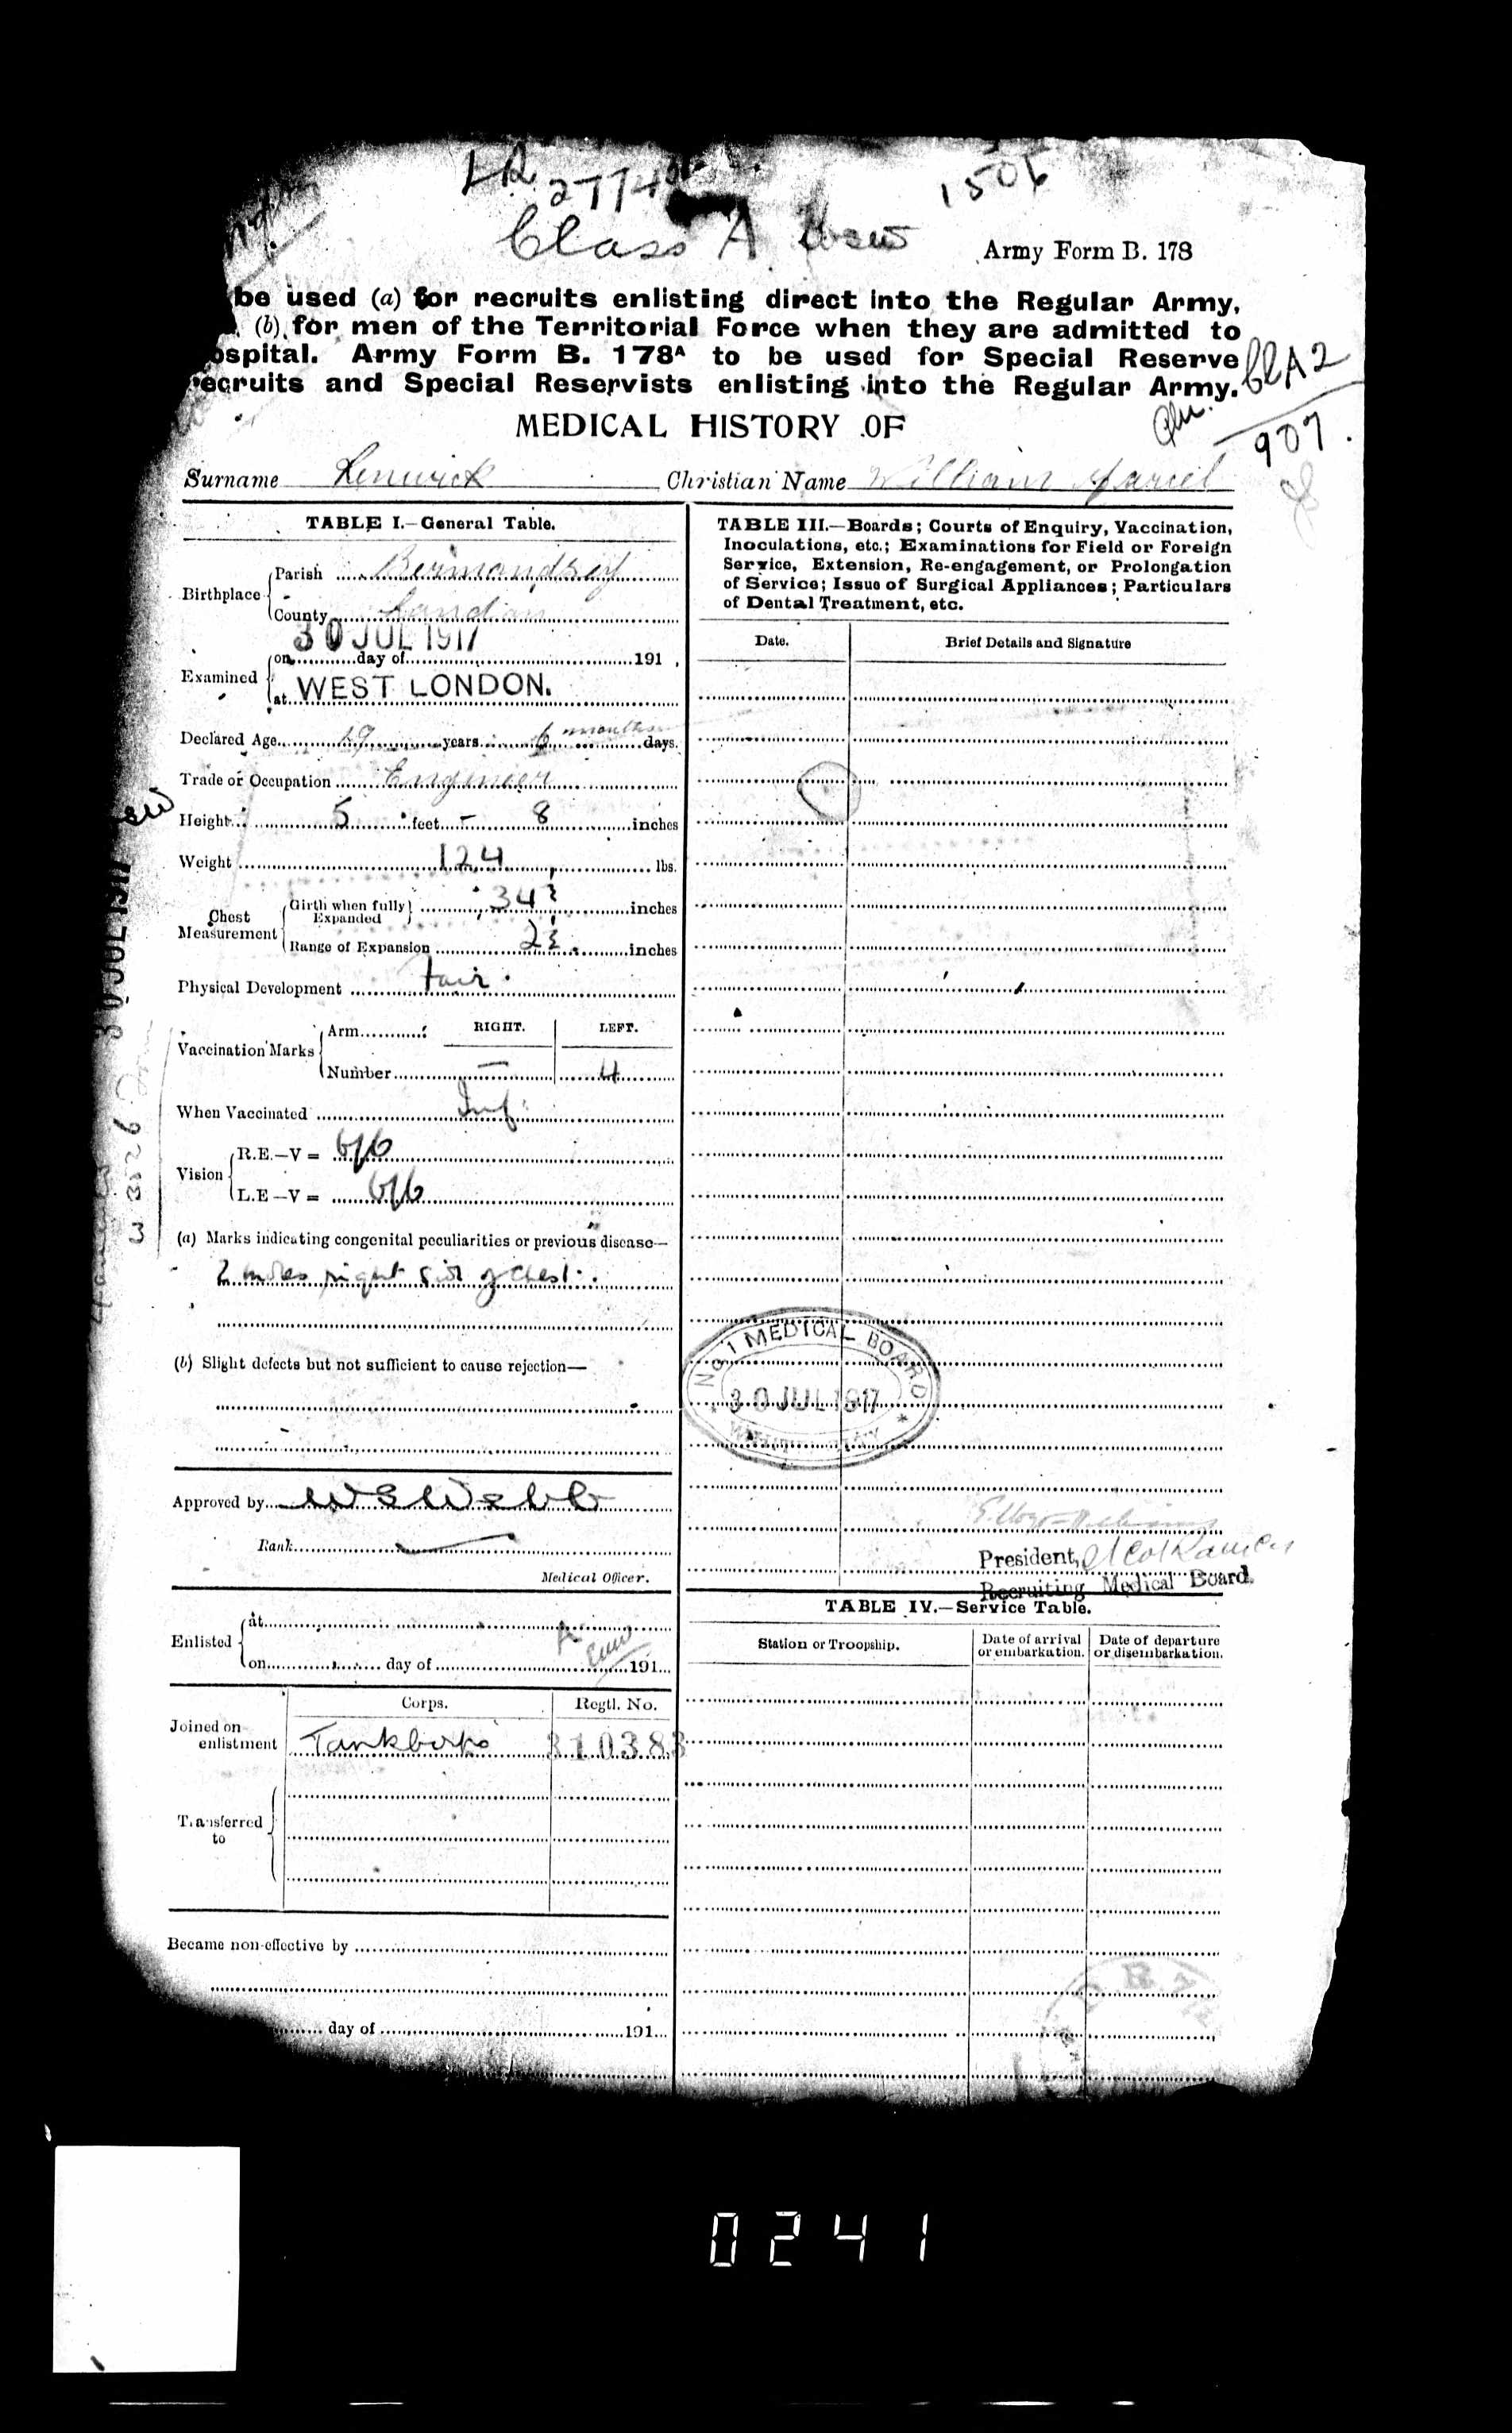 LR 2774
1506
Class A
Army Form B. 178
be used (a) for recruits enlisting direct into the Regular Army,
(b) for men of the Territorial Force when they are admitted to
ospital. Army Form B. 178A to be used for Special Reserve
recruits and Special Reservists enlisting into the Regular Army.
Cl A 2
907.
MEDICAL HISTORY OF
Surname Christian Name William
TABLE I.—General Table.
Birthplace
Parish Bermondsey
County London
30 JUL 1917
Examined
on day of 191
at WEST LONDON.
Declared Age years 6 months days.
Trade or Occupation Engineer
Height 5 feet 8 inches
Weight 124 lbs.
Chest Measurement
Girth when fully Expanded 34 inches
Range of Expansion 2½ inches
Physical Development Fair.
Vaccination Marks
Arm RIGHT. LEFT.
Number — 4
When Vaccinated Inf.
Vision
R.E.—V = 6/6
L.E—V = 6/6
(a) Marks indicating congenital peculiarities or previous disease—
2 moles right side of chest.
(b) Slight defects but not sufficient to cause rejection—
Approved by W S Webb
Rank
Medical Officer.
Enlisted
at
on day of 191
Corps. Regtl. No.
Joined on enlistment Tank Corps 310383
Transferred to
Became non-effective by
day of 191
30 JUL 1917
TABLE III.—Boards; Courts of Enquiry, Vaccination,
Inoculations, etc.; Examinations for Field or Foreign
Service, Extension, Re-engagement, or Prolongation
of Service; Issue of Surgical Appliances; Particulars
of Dental Treatment, etc.
Date. Brief Details and Signature
No 1 MEDICAL BOARD
30 JUL 1917
President,
Recruiting Medical Board.
TABLE IV.—Service Table.
Station or Troopship. Date of arrival or embarkation. Date of departure or disembarkation.
0241